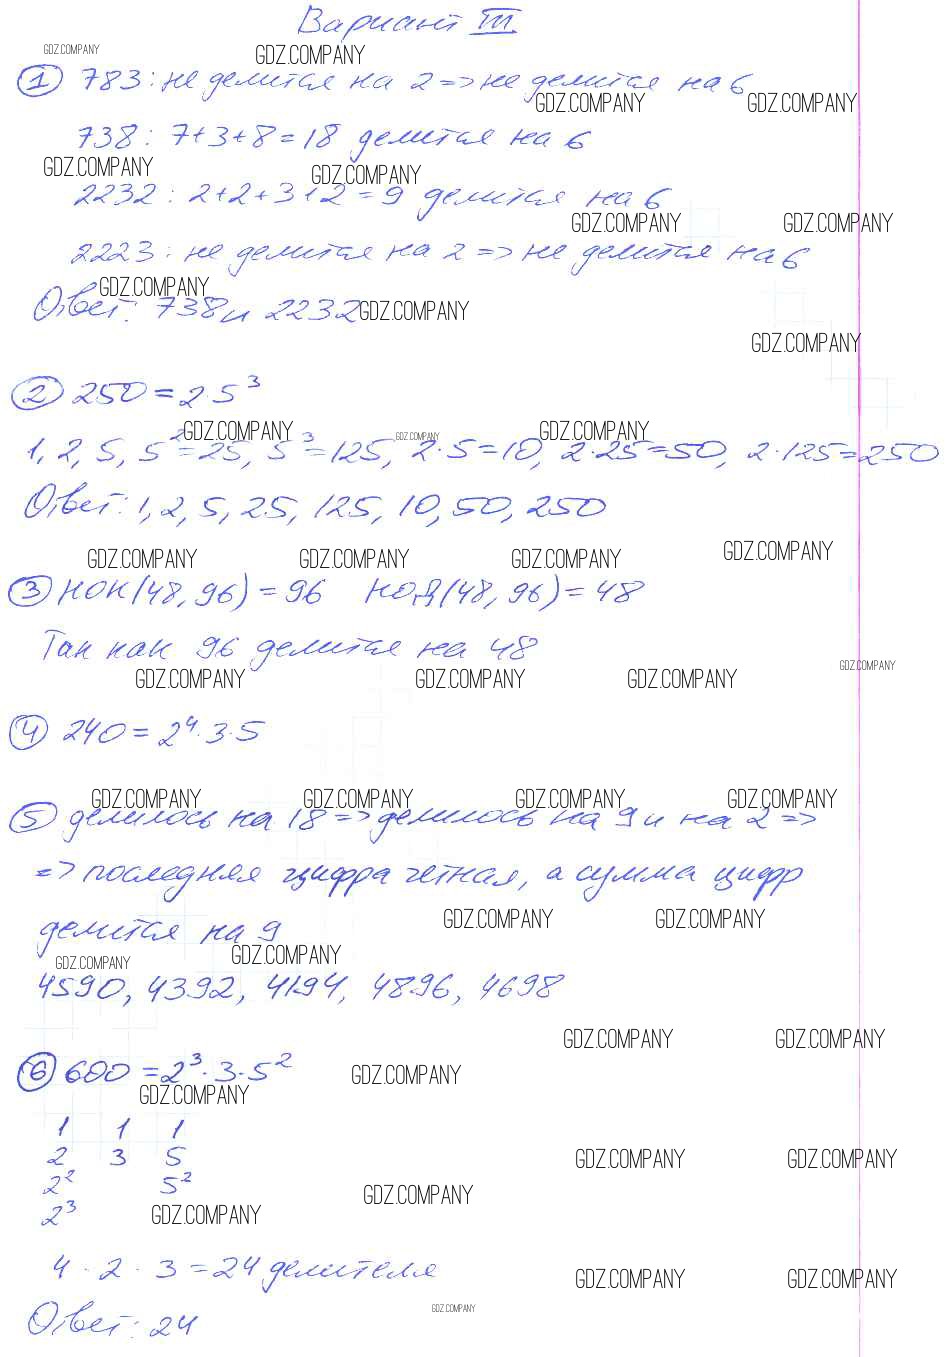 Вариант III.
GDZ.COMPANY
GDZ.COMPANY
1 783 : не делится на 2 => не делится на 6
GDZ.COMPANY GDZ.COMPANY
738 : 7+3+8=18 делится на 6
GDZ.COMPANY GDZ.COMPANY
2232 : 2+2+3+2=9 делится на 6
GDZ.COMPANY GDZ.COMPANY
2223 : не делится на 2 => не делится на 6
GDZ.COMPANY
Ответ: 738 и 2232
GDZ.COMPANY
GDZ.COMPANY
2 250 = 2·5³
GDZ.COMPANY GDZ.COMPANY GDZ.COMPANY
1, 2, 5, 5²=25, 5³=125, 2·5=10, 2·25=50, 2·125=250
Ответ: 1, 2, 5, 25, 125, 10, 50, 250
GDZ.COMPANY GDZ.COMPANY GDZ.COMPANY GDZ.COMPANY
3 НОК(48, 96) = 96 НОД(48, 96) = 48
Так как 96 делится на 48
GDZ.COMPANY GDZ.COMPANY GDZ.COMPANY GDZ.COMPANY
4 240 = 2⁴·3·5
GDZ.COMPANY GDZ.COMPANY GDZ.COMPANY GDZ.COMPANY
5 делилось на 18 => делилось на 9 и на 2 =>
=> последняя цифра чётная, а сумма цифр
GDZ.COMPANY GDZ.COMPANY
делится на 9
GDZ.COMPANY GDZ.COMPANY
4590, 4392, 4194, 4896, 4698
GDZ.COMPANY GDZ.COMPANY
6 600 = 2³·3·5²
GDZ.COMPANY
GDZ.COMPANY
1 1 1
2 3 5
GDZ.COMPANY GDZ.COMPANY
2² 5²
GDZ.COMPANY
2³
GDZ.COMPANY
4 · 2 · 3 = 24 делителя
GDZ.COMPANY GDZ.COMPANY
GDZ.COMPANY
Ответ: 24